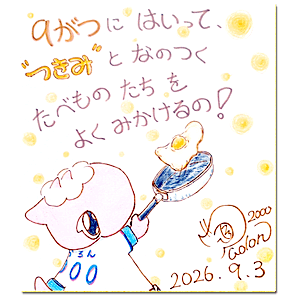 9がつ に はいって、
"つきみ" と なのつく
たべもの たち を
よく みかけるの!
ろん
00
2000
Colon
2026. 9. 3